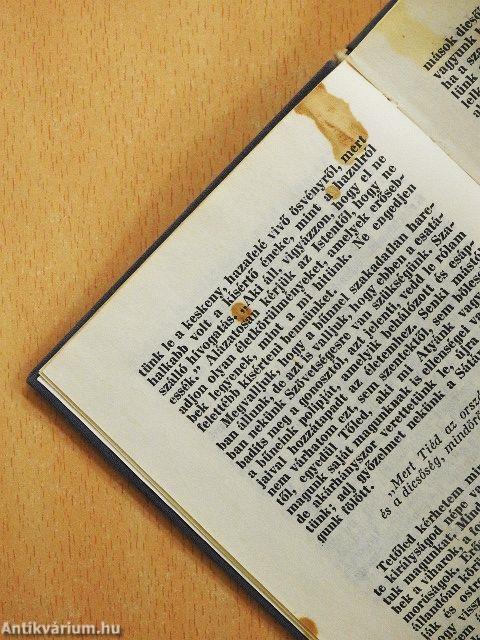 mások dicső
vagyunk
ha a sze
tünk
lelk
tünk le a keskeny, hazafelé vivő ösvényről, mert
halkabb volt a kísértő éneke, mint a hazulról
szálló hívogatás. „ ki áll, vigyázzon, hogy el ne
essék." Alázatosan kérjük az Istentől, hogy ne
adjon olyan életkörülményeket, amelyek erőseb-
bek legyenek, mint a mi hitünk. Ne engedjen
felettébb kísérteni bennünket.
Megvalljuk, hogy a bűnnel szakadatlan harc-
ban állunk, de azt is valljuk, hogy ebben a csatá-
ban nekünk Szövetségesre van szükségünk. Sza-
badíts meg a gonosztól, ezt jelenti: vedd le rólam
a bűneim polipját, amely behálózott és csáp-
jaival hozzátapadt az életemhez. Senki mástól
nem várhatom ezt, sem szentektől, sem bölcsek-
től, egyedül Tőled, aki az Atyánk vagy.
magunk saját magunkat is ellenségei
de akárhányszor verettetünk le, újra
tünk; adj győzelmet nekünk a Sátán
gunk fölött.
„Mert Tiéd az orszá
és a dicsőség, mindör
Tetőled kérhetem min
te királyságod népe va
tuk magunkat. Mie
bek a viharok, a to
morúságok. Erő
állandóan kör
és osto
szük
Antikvárium.hu